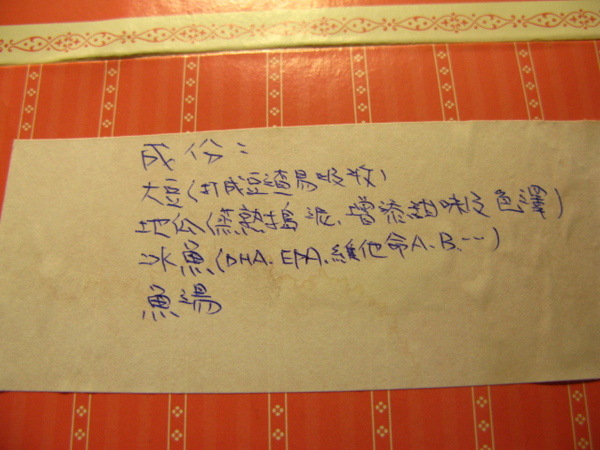 成份：
大豆(打成豆渣易吸收)
地瓜(蒸熟搗泥、增添甜味及色澤)
冰魚(DHA、EPA、維他命A、B、…)
魚湯